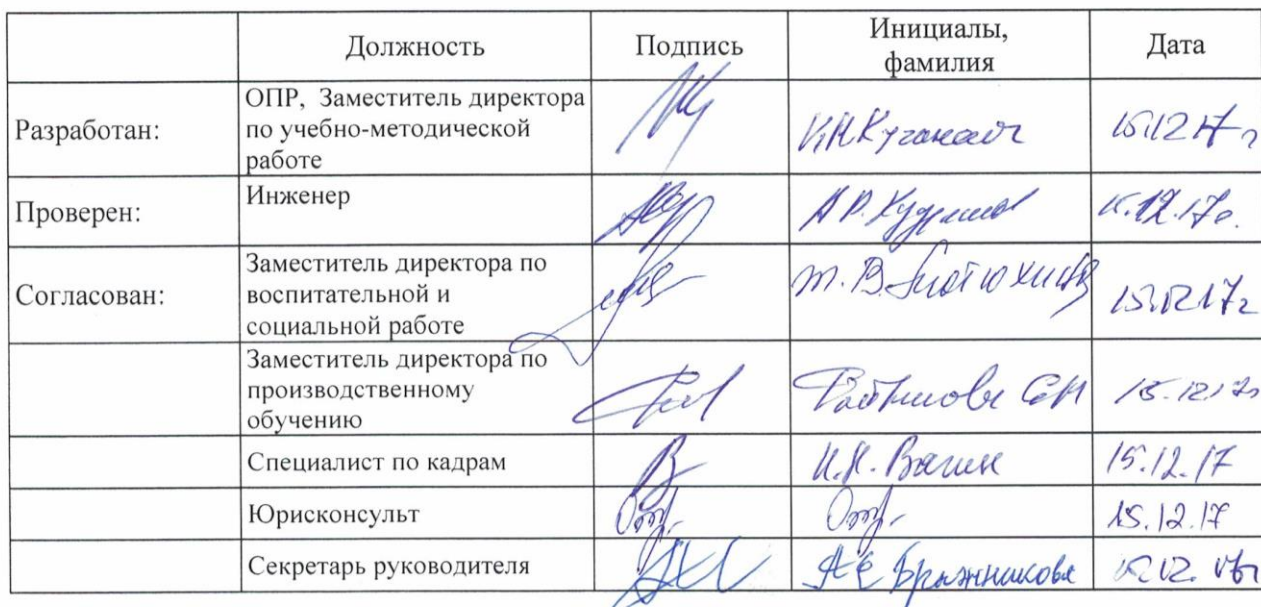 Должность Подпись Инициалы, фамилия Дата
Разработан:
ОПР, Заместитель директора
по учебно-методической
работе
15.12.17г
Проверен:
Инженер
15.12.17г.
Согласован:
Заместитель директора по
воспитательной и
социальной работе
Т.В.
15.12.17г
Заместитель директора по
производственному
обучению
15.12.17г
Специалист по кадрам
15.12.17
Юрисконсульт
15.12.17
Секретарь руководителя
А Е Бражникова
15.12.17г